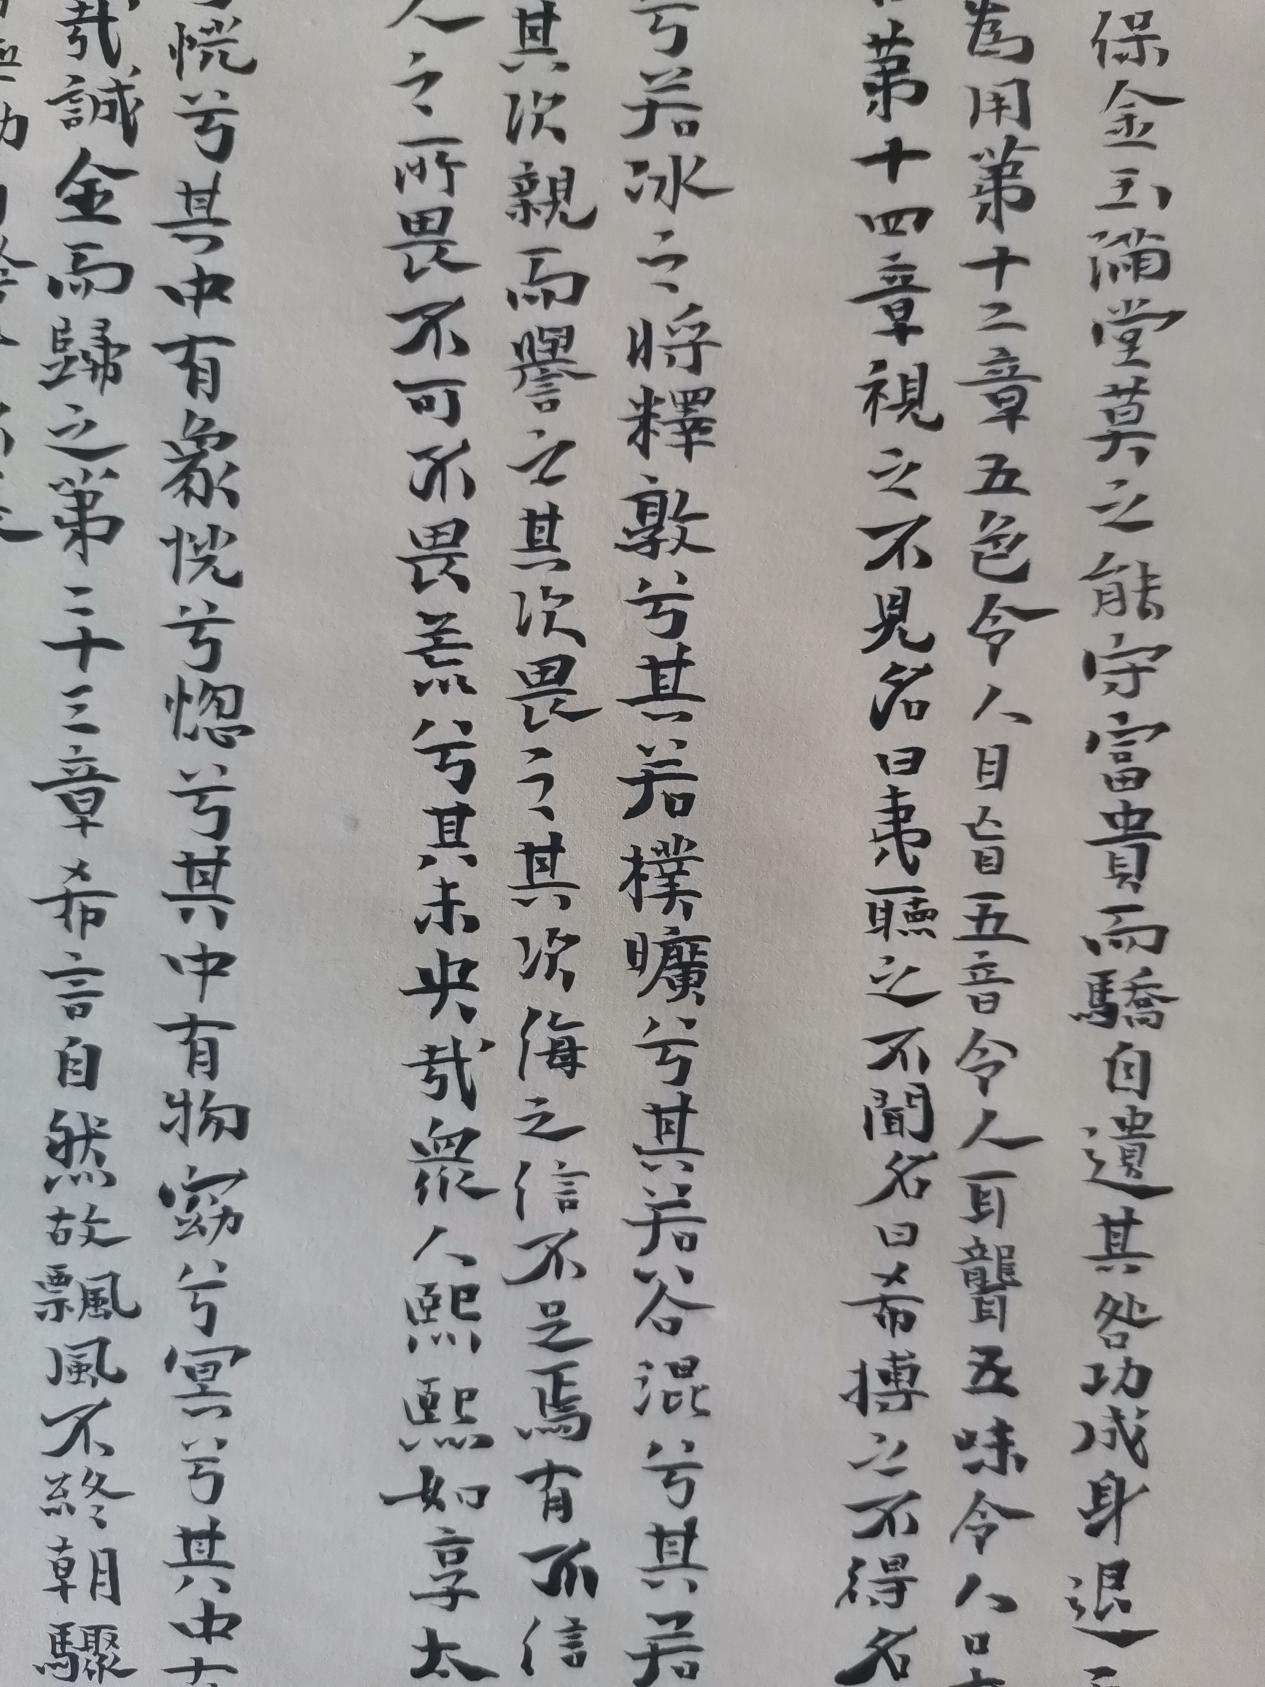 保金玉滿堂莫之能守富貴而驕自遺其咎功成身退
為用第十二章五色令人目盲五音令人耳聾五味令人口
第十四章視之不見名曰夷聽之不聞名曰希搏之不得名
兮若冰之將釋敦兮其若樸曠兮其若谷混兮其若
其次親而譽之其次畏之其次侮之信不足焉有不信
人之所畏不可不畏荒兮其未央哉眾人熙熙如享太
恍兮其中有象恍兮惚兮其中有物窈兮冥兮其中有
哉誠全而歸之第二十三章希言自然故飄風不終朝驟